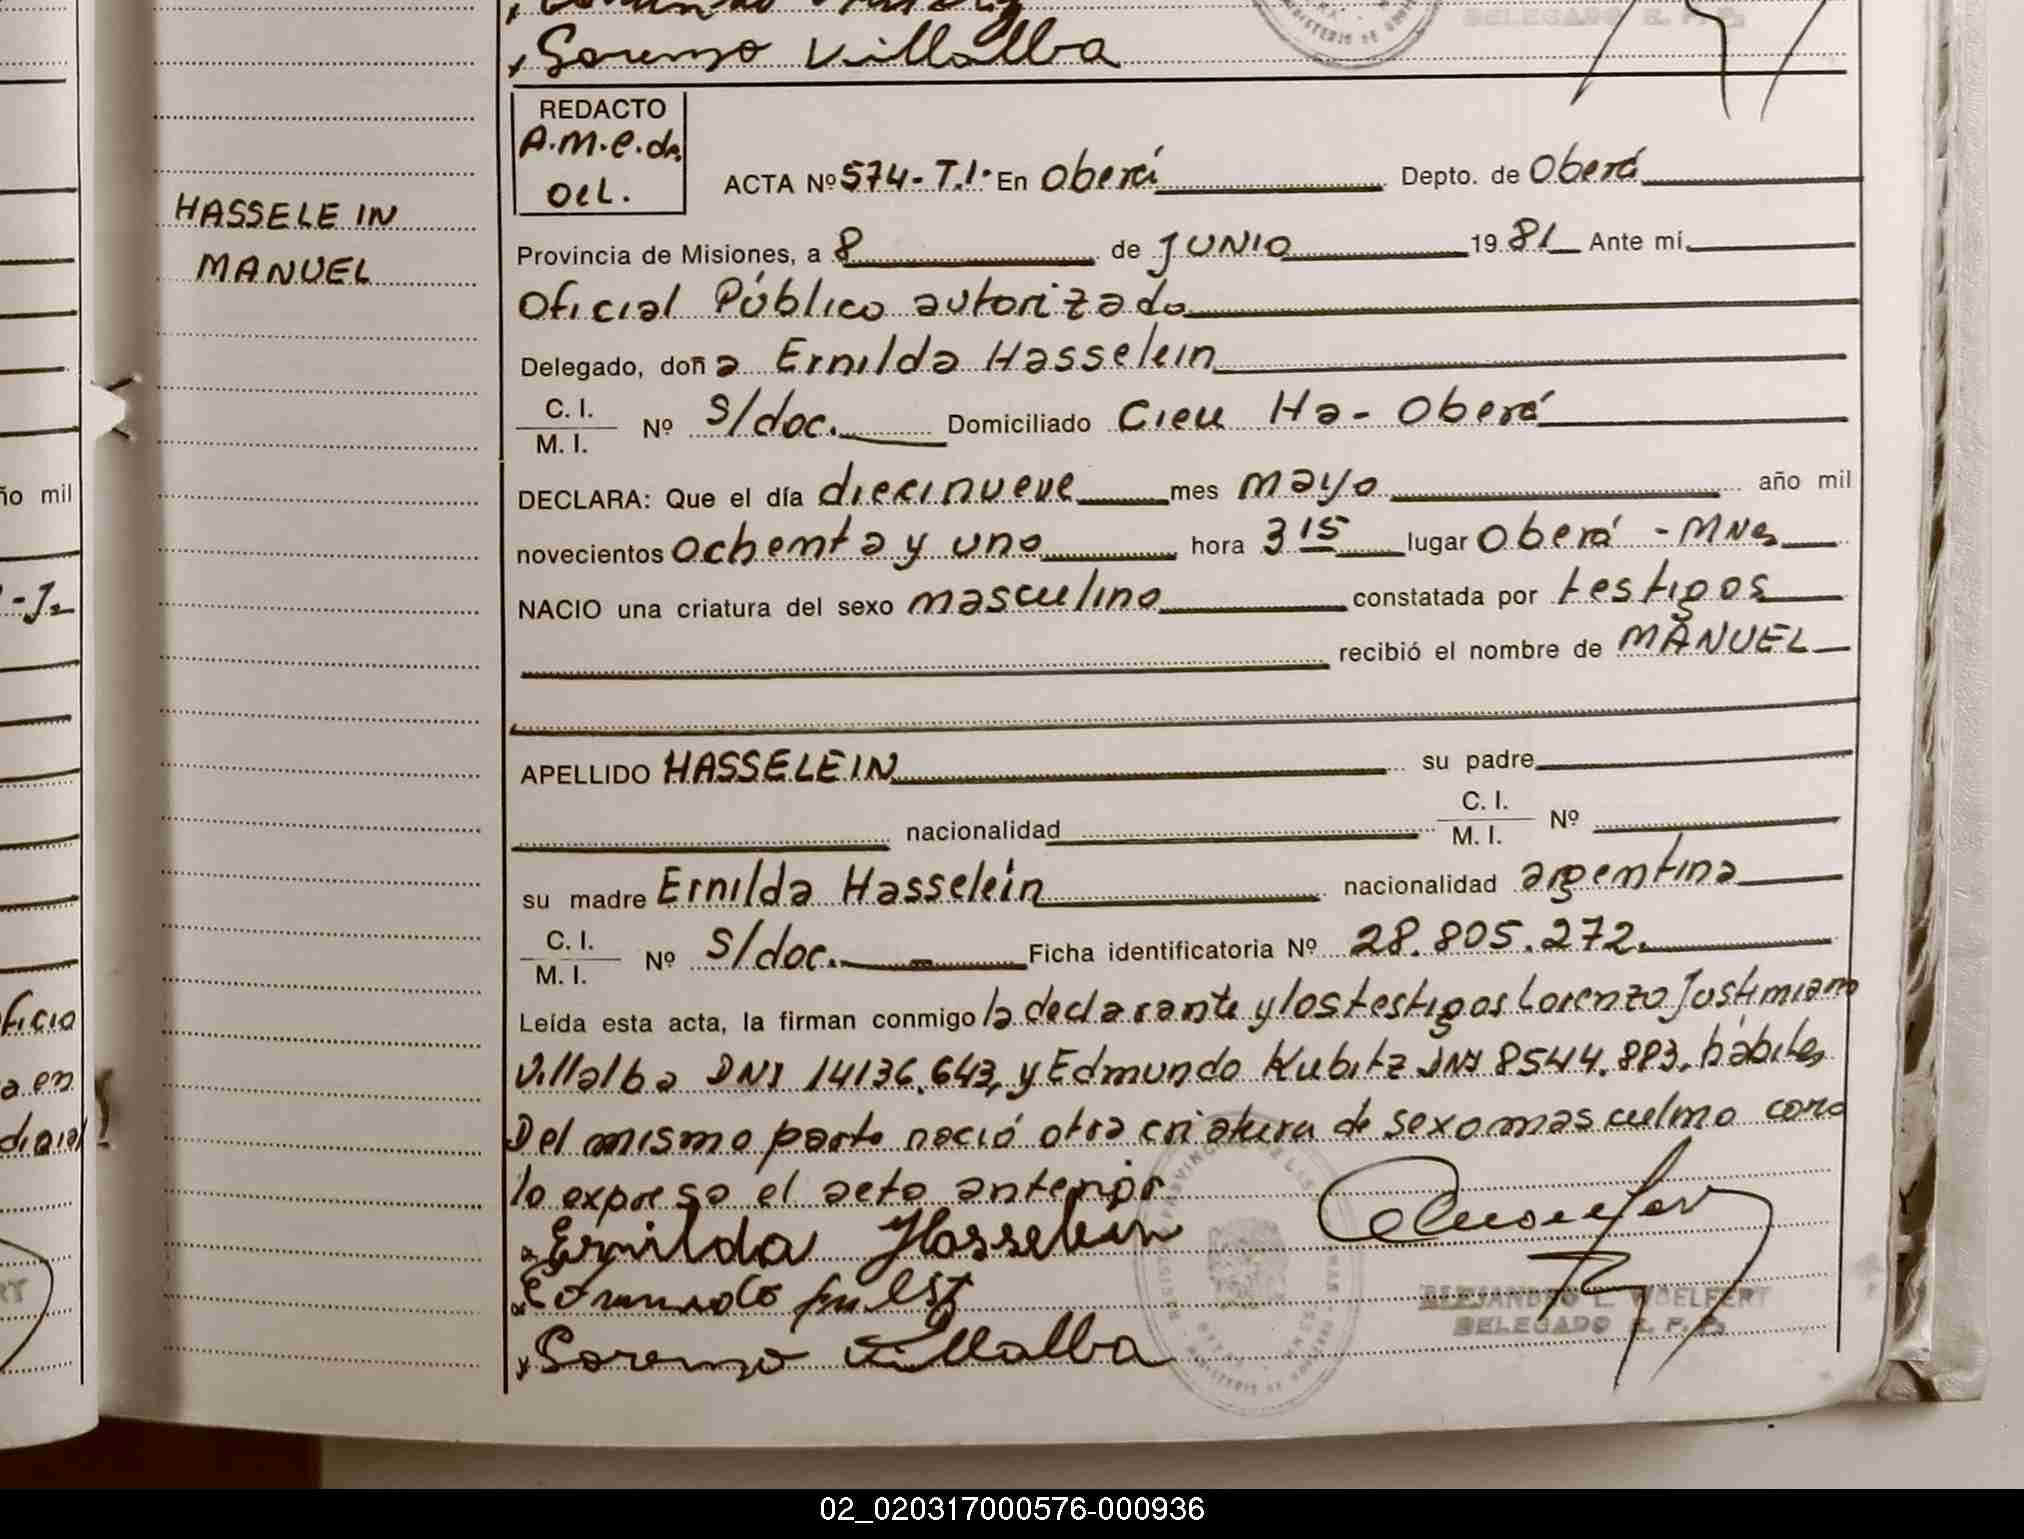 Lorenzo Villalba
REDACTO
A.M.C.de
OLL.
ACTA Nº 574-T.I. En Oberá Depto. de Oberá
HASSELEIN
MANUEL
Provincia de Misiones, a 8 de JUNIO 19 81 Ante mí
Oficial Público autorizado
Delegado, doña Ernilda Hasselein
C. I.
M. I.
Nº S/doc. Domiciliado Cieu Ha - Oberá
DECLARA: Que el día diecinueve mes mayo año mil
novecientos ochenta y uno hora 3 15 lugar Oberá - MNes
NACIO una criatura del sexo masculino constatada por testigos
recibió el nombre de MANUEL
APELLIDO HASSELEIN su padre
nacionalidad C. I.
M. I. Nº
su madre Ernilda Hasselein nacionalidad argentina
C. I.
M. I.
Nº S/doc. - Ficha identificatoria Nº 28.805.272.
Leída esta acta, la firman conmigo la declarante y los testigos Lorenzo Justimiano
Villalba DNI 14136.643, y Edmundo Kubitz DNI 8544.883, hábiles
Del mismo parto nació otra criatura de sexo masculino como
lo expresa el acta anterior
Ernilda Hasselein
Lorenzo Villalba
ALEJANDRO L. WOELFERT
DELEGADO R. P. P.
ño mil
ficio
a en
dicial
02_020317000576-000936